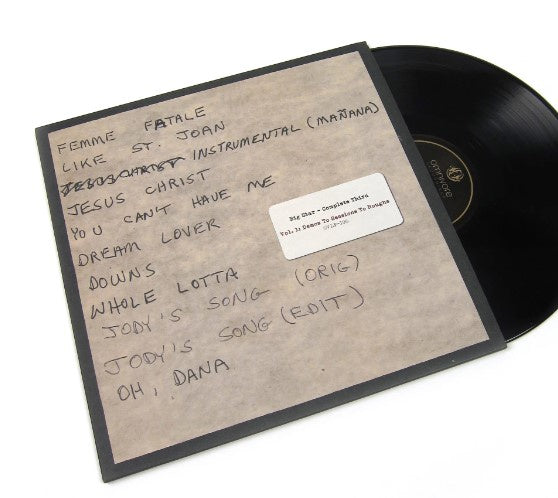 FEMME FATALE
LIKE ST. JOAN
JESUS CHRIST INSTRUMENTAL (MAÑANA)
JESUS CHRIST
YOU CAN'T HAVE ME
DREAM LOVER
DOWNS
WHOLE LOTTA
JODY'S SONG (ORIG)
JODY'S SONG (EDIT)
OH, DANA
Big Star - Complete Third
Vol. 1: Demos To Sessions To Roughs
omnivore